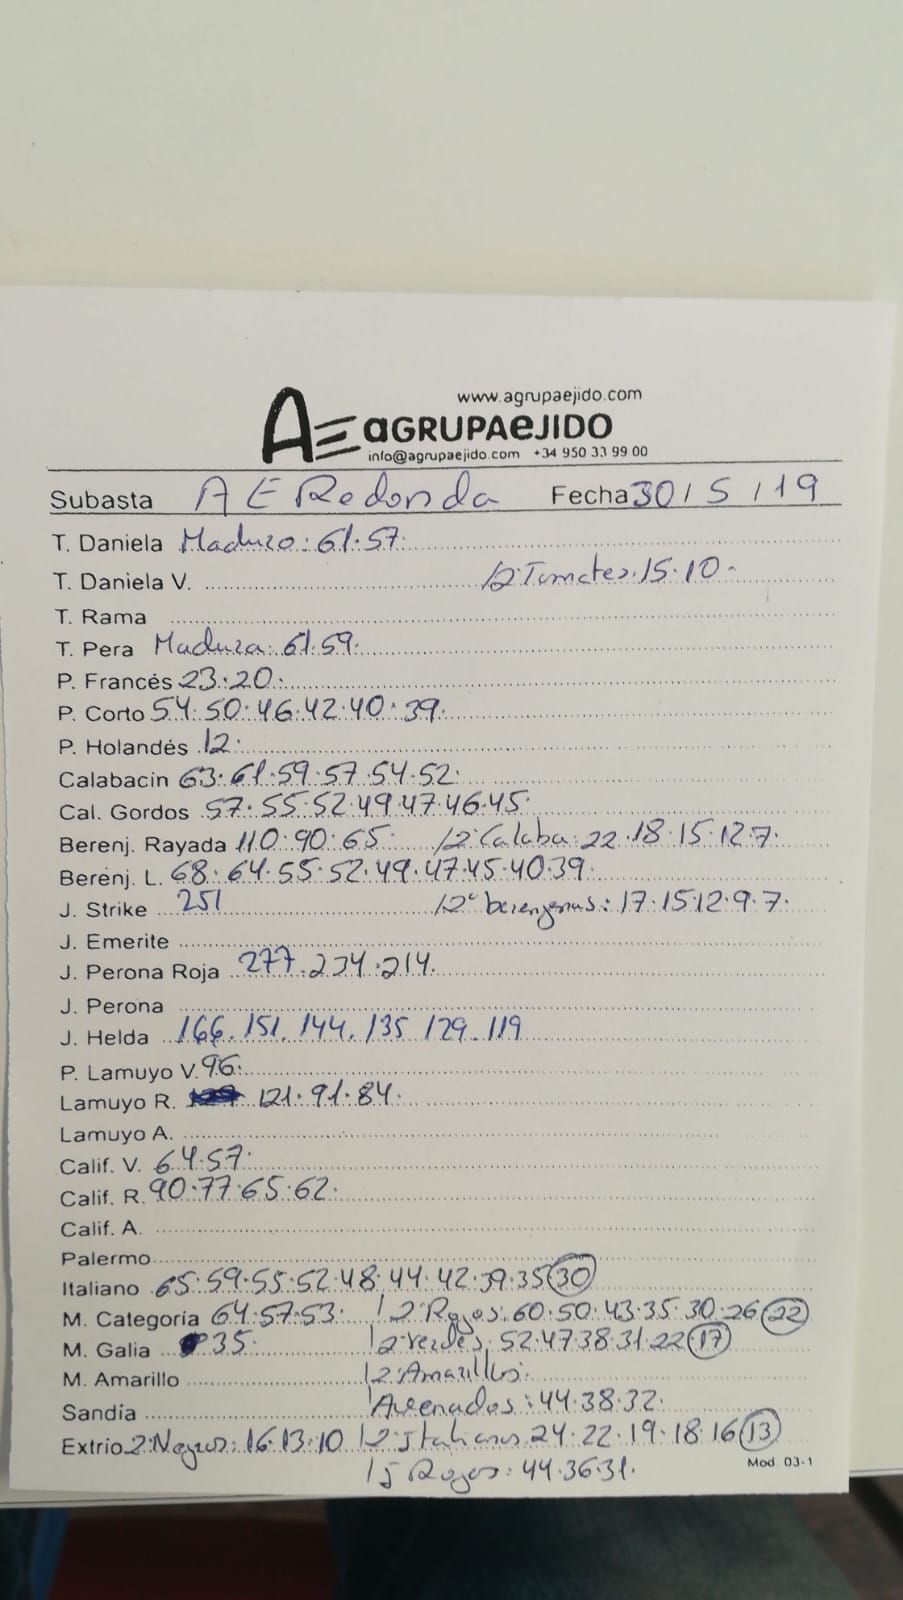 www.agrupaejido.com
AE aGRUPAeJIDO
info@agrupaejido.com +34 950 33 99 00
Subasta AE Redonda Fecha 30/5/19
T. Daniela Maduro: 61.57.
T. Daniela V. /2ª Tomates: 15.10.
T. Rama
T. Pera Madura: 61.59.
P. Francés 23.20.
P. Corto 54.50.46.42.40.39.
P. Holandés 12.
Calabacin 63.61.59.57.54.52.
Cal. Gordos 57.55.52.49.47.46.45.
Berenj. Rayada 110.90.65. /2ª Calaba: 22.18.15.12.7.
Berenj. L. 68.64.55.52.49.47.45.40.39.
J. Strike 251 /2ª berenjenas: 17.15.12.9.7.
J. Emerite
J. Perona Roja 277.234.214.
J. Perona
J. Helda 166.151.144.135 129.119
P. Lamuyo V. 96.
Lamuyo R. 121.91.84.
Lamuyo A.
Calif. V. 64.57.
Calif. R. 90.77.65.62.
Calif. A.
Palermo
Italiano 65.59.55.52.48.44.42.39.35 30
M. Categoría 64.57.53. /2ª Rojos: 60.50.43.35.30.26 22
M. Galia 35. /2ª Verdes: 52.47.38.31.22 17
M. Amarillo /2ª Amarillos:
Sandía Asenados: 44.38.32.
Extrio 2ª Negros: 16.13.10 /2ª Italianos 24.22.19.18.16 13
Mod. 03-1
/J Rojos: 44.36.31.